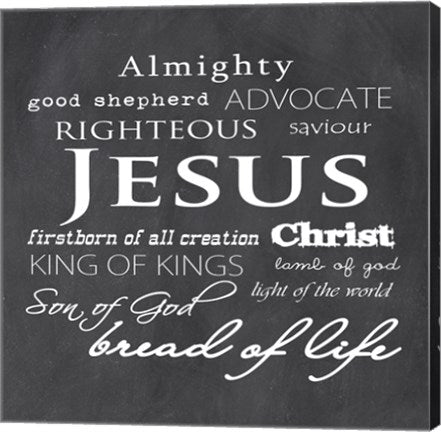 Almighty
good shepherd ADVOCATE
RIGHTEOUS saviour
JESUS
firstborn of all creation Christ
KING OF KINGS lamb of god
Son of God light of the world
bread of life